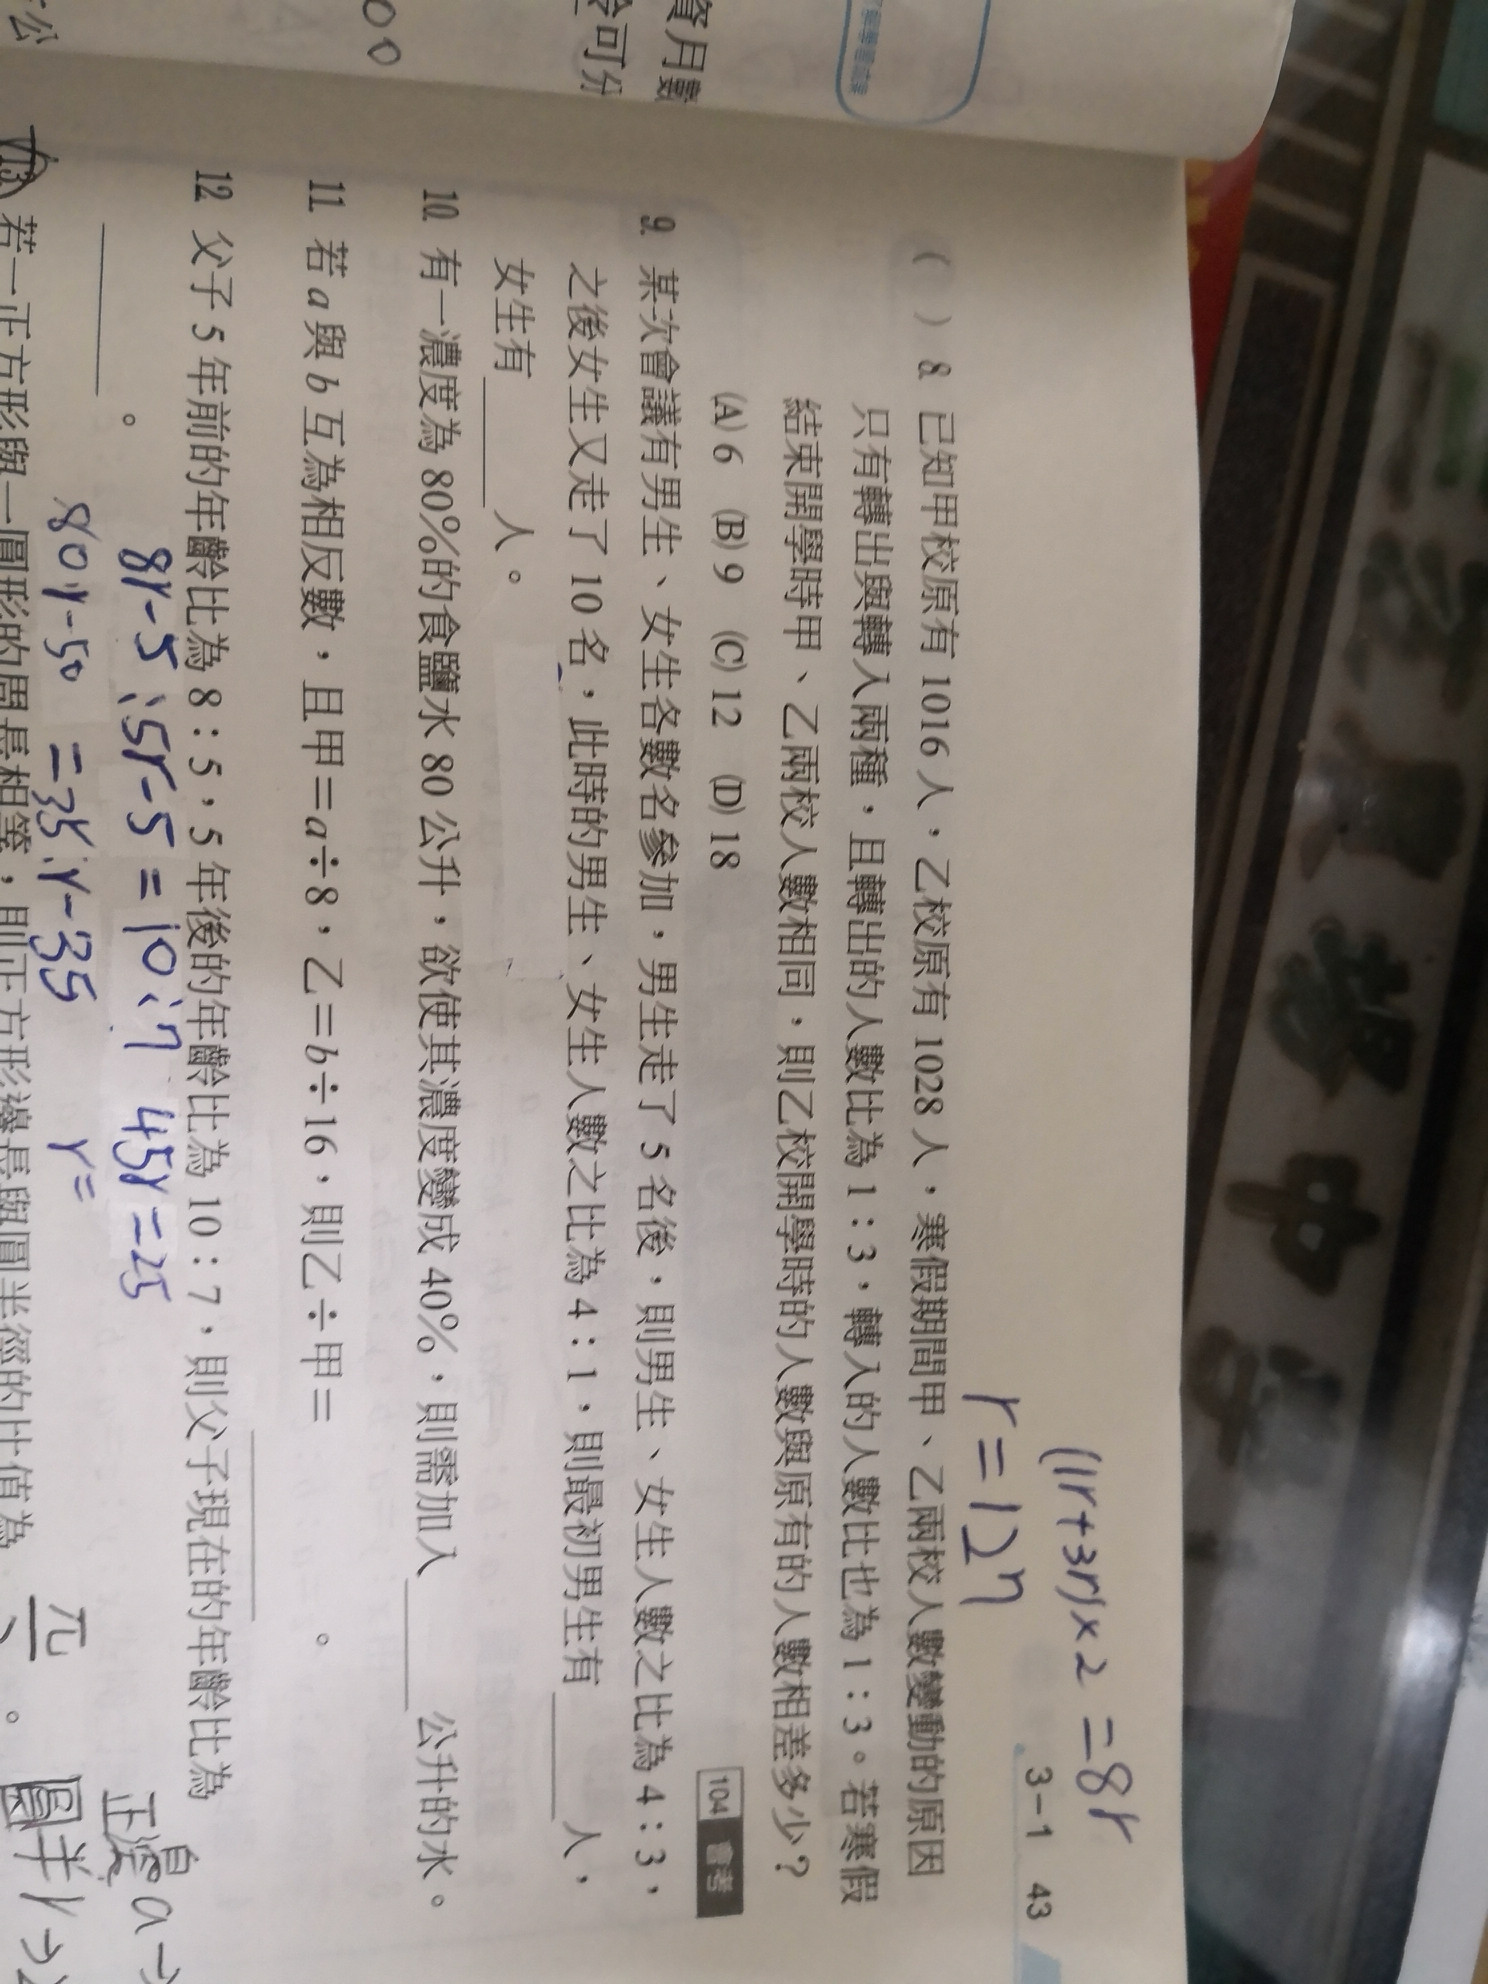 (1r+3r)×2=8r
3-1 43
r=12
( ) 8. 已知甲校原有 1016 人，乙校原有 1028 人，寒假期間甲、乙兩校人數變動的原因
只有轉出與轉入兩種，且轉出的人數比為 1：3，轉入的人數比也為 1：3。若寒假
結束開學時甲、乙兩校人數相同，則乙校開學時的人數與原有的人數相差多少？
(A) 6 (B) 9 (C) 12 (D) 18
104 會考
9. 某次會議有男生、女生各數名參加，男生走了 5 名後，則男生、女生人數之比為 4：3，
之後女生又走了 10 名，此時的男生、女生人數之比為 4：1，則最初男生有 人，
女生有 人。
10. 有一濃度為 80%的食鹽水 80 公升，欲使其濃度變成 40%，則需加入 公升的水。
11. 若 a 與 b 互為相反數，且甲＝a÷8，乙＝b÷16，則乙÷甲＝ 。
12. 父子 5 年前的年齡比為 8：5，5 年後的年齡比為 10：7，則父子現在的年齡比為
。
8r-5:5r-5=10:7 45r=25
80r-50=35r-35 r=
13. 若一正方形與一圓形的周長相等，則正方形邊長與圓半徑的比值為 。
資月數
可分
00
公